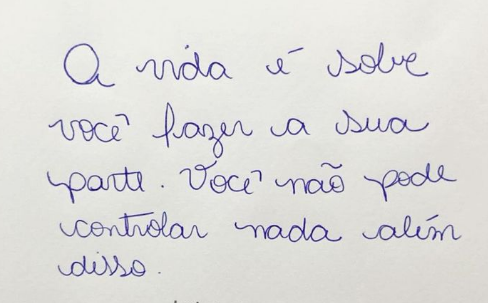 A vida é sobre
você fazer a sua
parte. Você não pode
controlar nada além
disso.